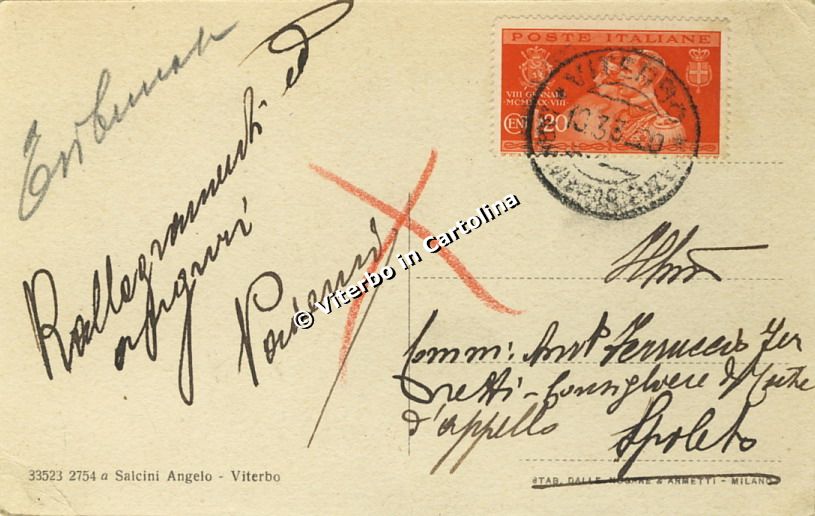 Tribunale
Rallegramenti ed
auguri
POSTE ITALIANE
VIII GENNAIO
MCMXXX-VIII
CENT 20
VITERBO
10.3.6 20
© Viterbo in Cartolina
Ill/mo
Comm: Ferruccio Fer
retti - Consigliere di Corte
d'appello
Spoleto
33523 2754 a Salcini Angelo - Viterbo
STAB. DALLE NOGARE & ARMETTI - MILANO